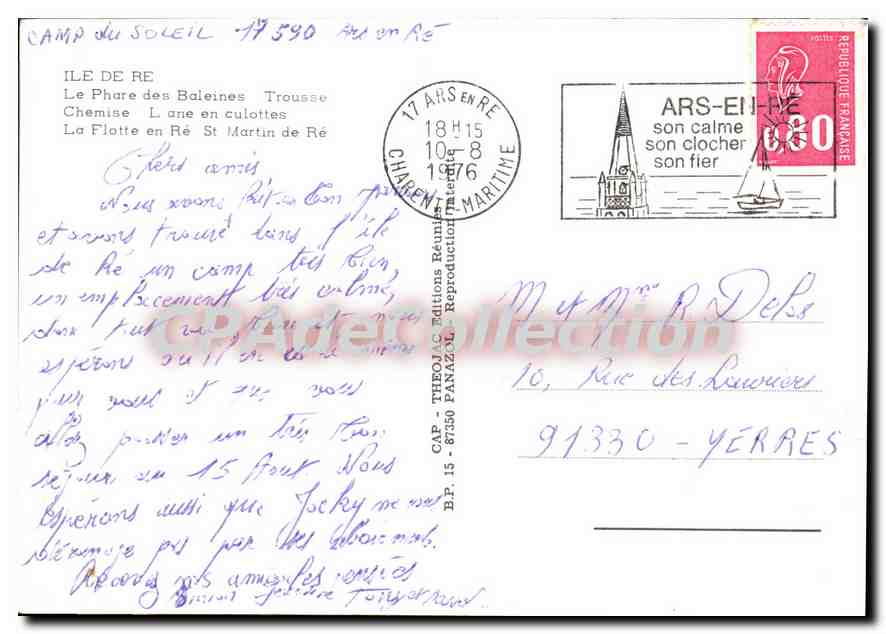 CAMP du SOLEIL 17 590 Ars en Ré
ILE DE RE
Le Phare des Baleines Trousse
Chemise L ane en culottes
La Flotte en Ré St Martin de Ré
Chers amis
Nous avons fait un bon
et avons trouvé dans l'île
de Ré un camp très bien,
un emplacement très calme,
donc tout va bien et nous
espérons qu'il en est de même
pour vous et que vous
allez passer un très bon
séjour au 15 Aout. Nous
espérons aussi que Jocky ne vous
dérange pas par ses aboiements.
Recevez nos amicales pensées
17 ARS EN RE
18 H 15
10-8
1976
CHARENTE MARITIME
ARS-EN-RÉ
son calme
son clocher
son fier
POSTES
0,80
REPUBLIQUE FRANÇAISE
CAP - THEOJAC Editions Réunies
B.P. 15 - 87350 PANAZOL Reproduction Interdite
M et Mme R. Delos
10, Rue des Lauriers
91330 - YERRES
CPAdeCollection